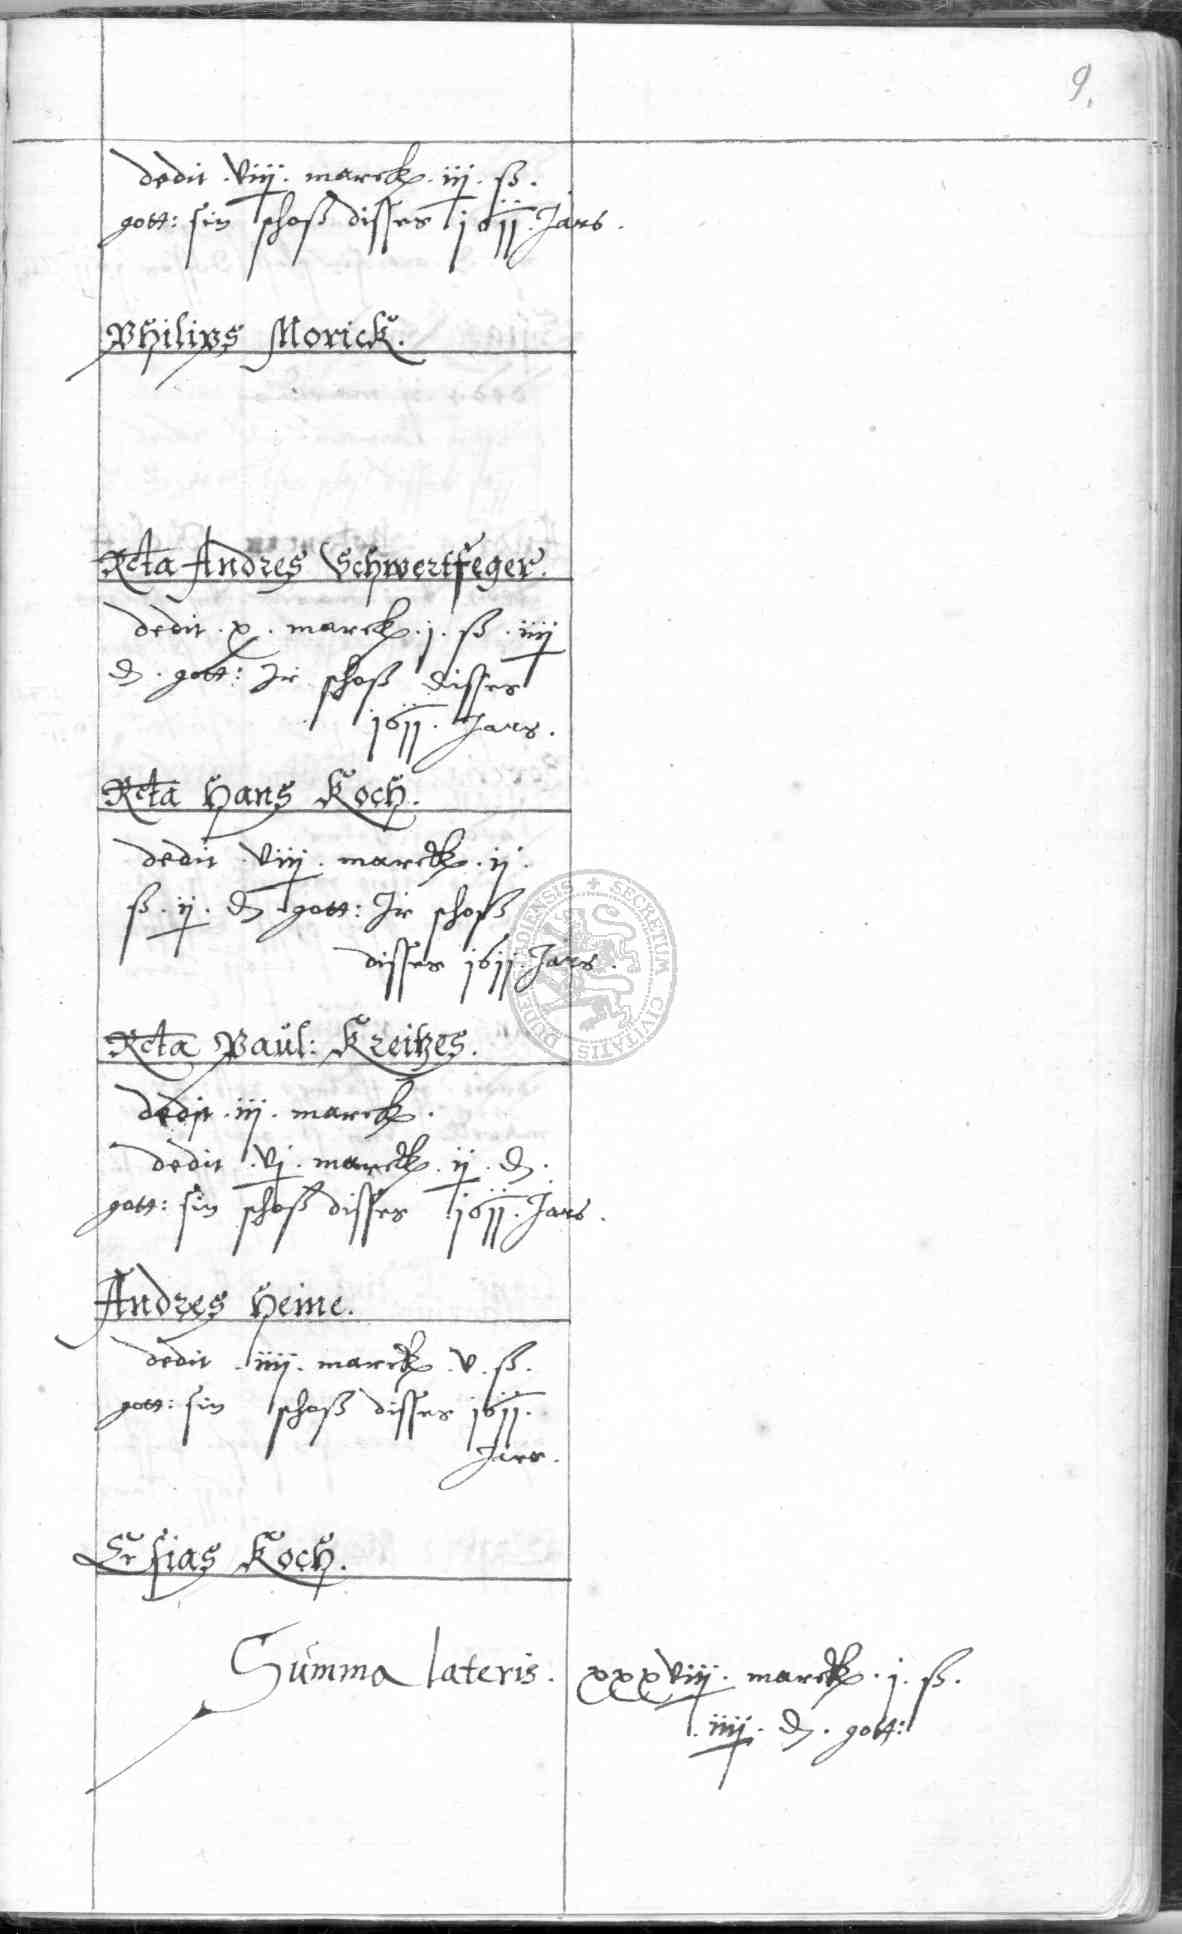 9.
dedit . viij . marck . iij . ß .
gott: sin schoß disses 1611 . Jars .
Philips Morick .
Rcta Andres Schwertfeger .
dedit . x . marck . j . ß . iiij
₰ . gott: Jr schoß disses
1611 . Jars .
Rcta Hans Koch .
dedit . viij . marck . ij .
ß . ij . ₰ . gott: Jr schoß
disses 1611 . Jars .
Rcta Paul: Kreitzes .
dedit . iij . marck .
dedit . vj . marck . ij . ₰ .
gott: sin schoß disses 1611 . Jars .
Andres Heine .
dedit . iiij . marck . v . ß .
gott: sin schoß disses 1611 .
Jars .
Koch .
Summa lateris . xxxviij . marck . j . ß .
. iiij . ₰ . gott:
SECRETUM CIVITATIS